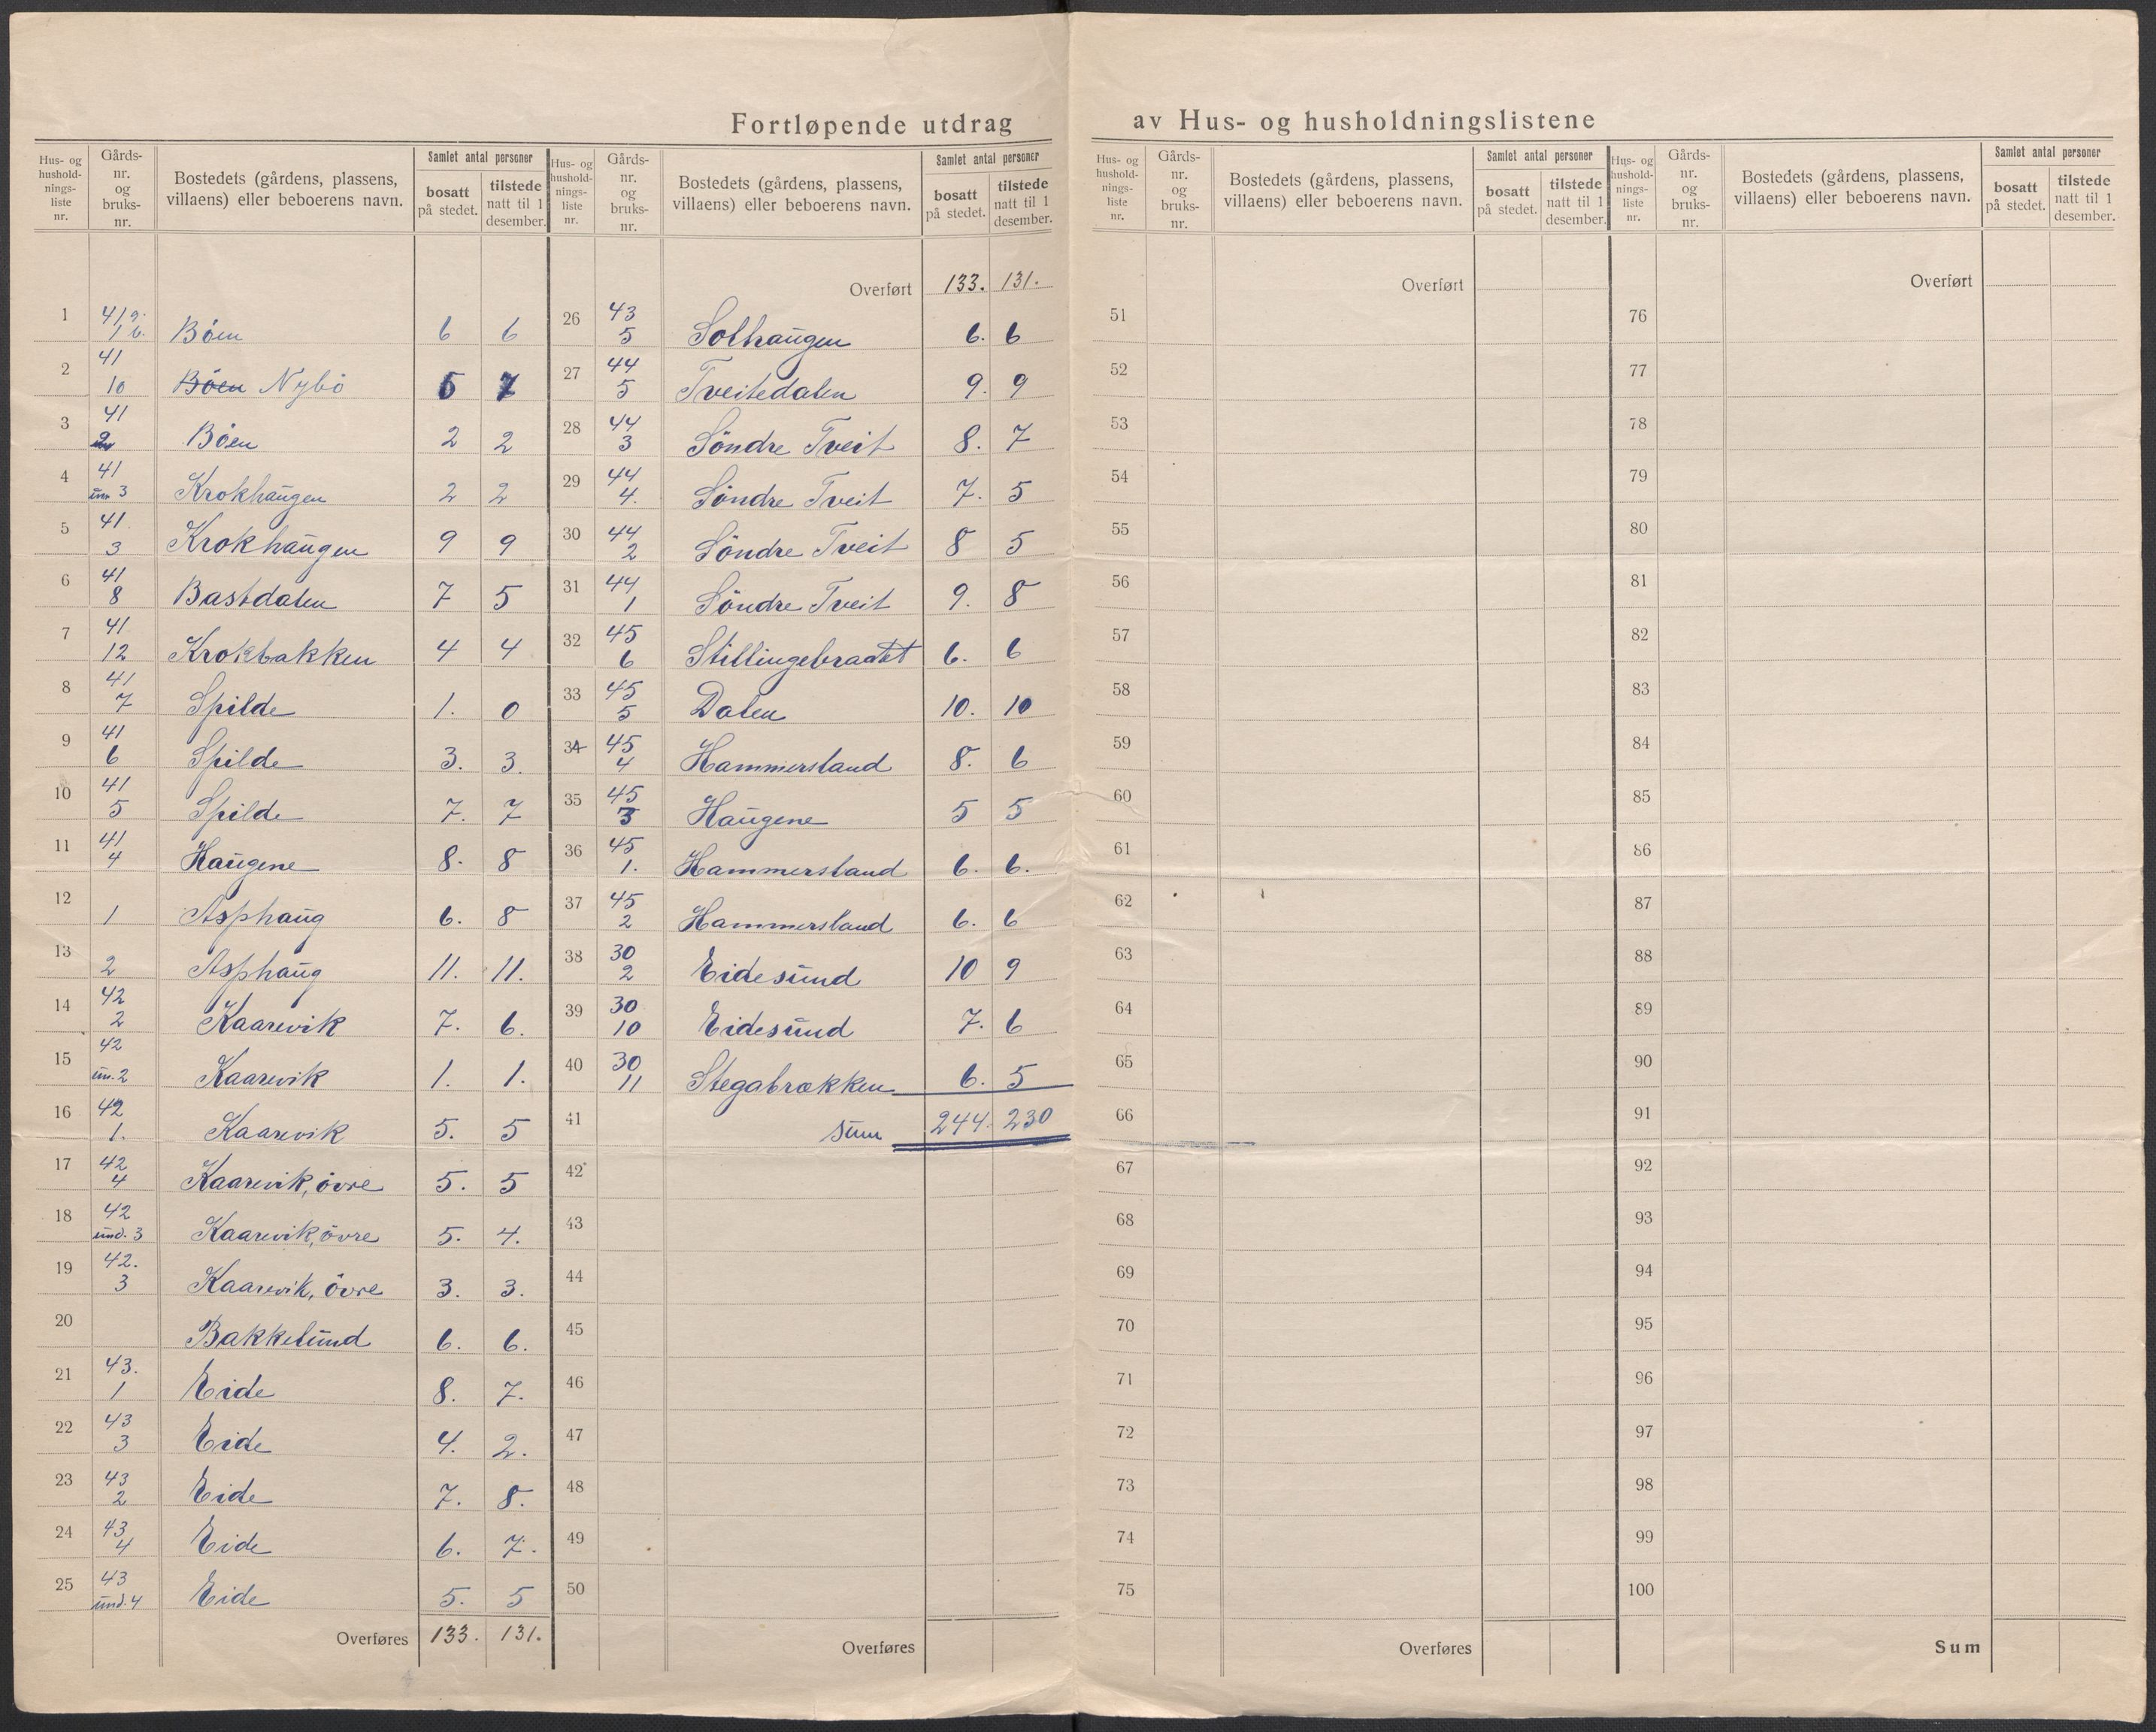 Fortløpende utdrag av Hus- og husholdningslistene
Hus- og hushold-nings-liste nr. | Gårds-nr. og bruks-nr. | Bostedets (gårdens, plassens, villaens) eller beboerens navn. | Samlet antal personer | bosatt på stedet. | tilstede natt til 1 desember.
1 | 41 9. 1 b. | Böen | 6 | 6
2 | 41 10 | Böen Nybö | 5 | 7
3 | 41 2 | Böen | 2 | 2
4 | 41 un 3 | Krokhaugen | 2 | 2
5 | 41 3 | Krokhaugen | 9 | 9
6 | 41 8 | Bastdalen | 7 | 5
7 | 41 12 | Krokbakken | 4 | 4
8 | 41 7 | Spilde | 1. | 0
9 | 41 6 | Spilde | 3. | 3.
10 | 41 5 | Spilde | 7. | 7
11 | 41 4 | Haugene | 8. | 8
12 | 1 | Asphaug | 6. | 8
13 | 2 | Asphaug | 11. | 11.
14 | 42 2 | Kaarevik | 7. | 6.
15 | 42 un. 2 | Kaarevik | 1. | 1.
16 | 42 1. | Kaarevik | 5. | 5
17 | 42 4 | Kaarevik, övre | 5. | 5
18 | 42 und. 3 | Kaarevik, övre | 5. | 4.
19 | 42. 3 | Kaarevik, övre | 3. | 3.
20 | Bakkelund | 6. | 6.
21 | 43. 1 | Eide | 8. | 7.
22 | 43 3 | Eide | 4. | 2.
23 | 43 2 | Eide | 7. | 8.
24 | 43 4 | Eide | 6. | 7.
25 | 43 und. 4 | Eide | 5. | 5
Overføres | 133. | 131.
Hus- og hushold-nings-liste nr. | Gårds-nr. og bruks-nr. | Bostedets (gårdens, plassens, villaens) eller beboerens navn. | Samlet antal personer | bosatt på stedet. | tilstede natt til 1 desember.
Overført | 133. | 131.
26 | 43 5 | Solhaugen | 6. | 6
27 | 44 5 | Tveitedalen | 9. | 9
28 | 44 3 | Söndre Tveit | 8. | 7
29 | 44 4. | Söndre Tveit | 7. | 5
30 | 44 2 | Söndre Tveit | 8 | 5
31 | 44 1 | Söndre Tveit | 9. | 8
32 | 45 6 | Stillingebraatet | 6. | 6
33 | 45 5 | Dalen | 10. | 10
34 | 45 4 | Hammersland | 8. | 6
35 | 45 3 | Haugene | 5 | 5
36 | 45 1. | Hammersland | 6. | 6.
37 | 45 2 | Hammersland | 6. | 6
38 | 30 2 | Eidesund | 10 | 9
39 | 30 10 | Eidesund | 7. | 6
40 | 30 11 | Stegabrekken | 6. | 5
41 | sum | 244. | 230
42
43
44
45
46
47
48
49
50
Overføres
Hus- og hushold-nings-liste nr. | Gårds-nr. og bruks-nr. | Bostedets (gårdens, plassens, villaens) eller beboerens navn. | Samlet antal personer | bosatt på stedet. | tilstede natt til 1 desember.
Overført
51
52
53
54
55
56
57
58
59
60
61
62
63
64
65
66
67
68
69
70
71
72
73
74
75
Overføres
Hus- og hushold-nings-liste nr. | Gårds-nr. og bruks-nr. | Bostedets (gårdens, plassens, villaens) eller beboerens navn. | Samlet antal personer | bosatt på stedet. | tilstede natt til 1 desember.
Overført
76
77
78
79
80
81
82
83
84
85
86
87
88
89
90
91
92
93
94
95
96
97
98
99
100
Sum